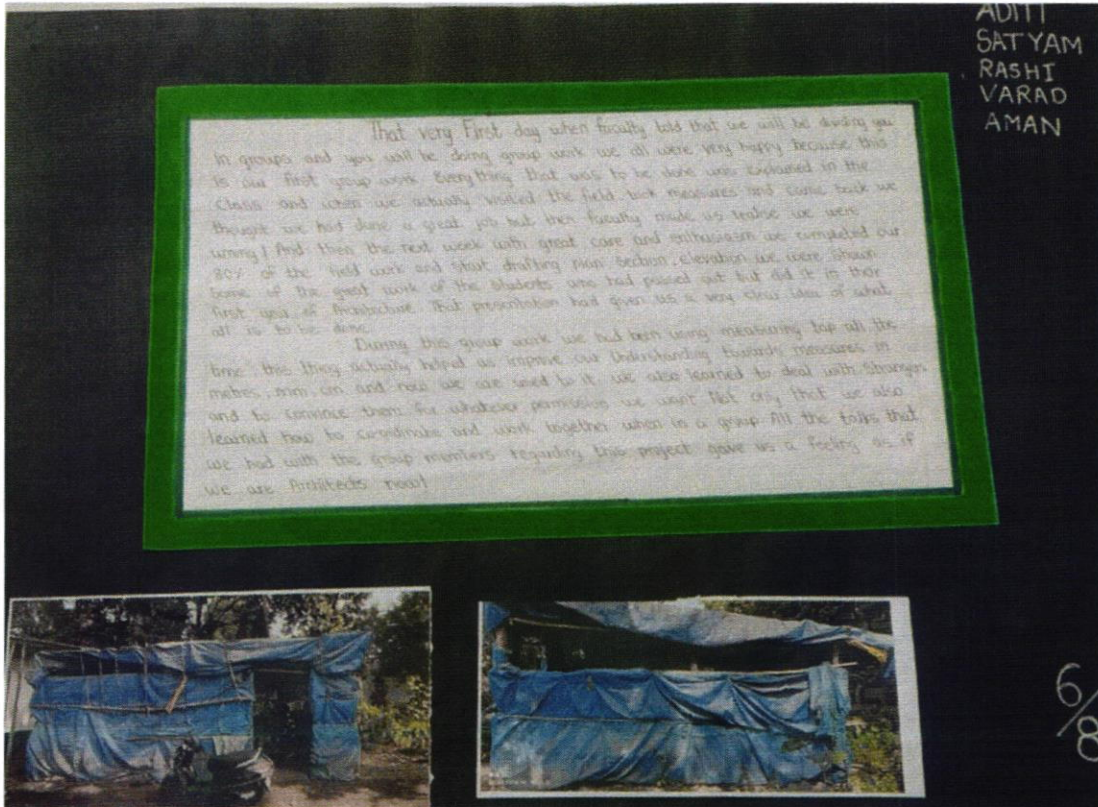 ADITI
SATYAM
RASHI
VARAD
AMAN
That very First day when faculty told that we will be dividing you
in groups and you will be doing group work we all were very happy because this
is our first group work. Everything that was to be done was explained in the
class and when we actually visited the field took measures and came back we
thought we had done a great job but then faculty made us realise we were
wrong! And then the next week with great care and enthusiasm we completed our
80% of the field work and start drafting plan section, elevation we were shown
some of the great work of the students who had passed out but did it in their
first year of Architecture. That presentation had given us a very clear idea of what
all is to be done.
During this group work we had been using measuring tap all the
time, this thing actually helped us improve our understanding towards measures in
metres, mm, cm and now we are used to it. we also learned to deal with strangers
and to convince them for whatever permission we want. Not only that we also
learned how to coordinate and work together when in a group. All the talks that
we had with the group members regarding this project gave us a feeling as if
we are Architects now!
6/8